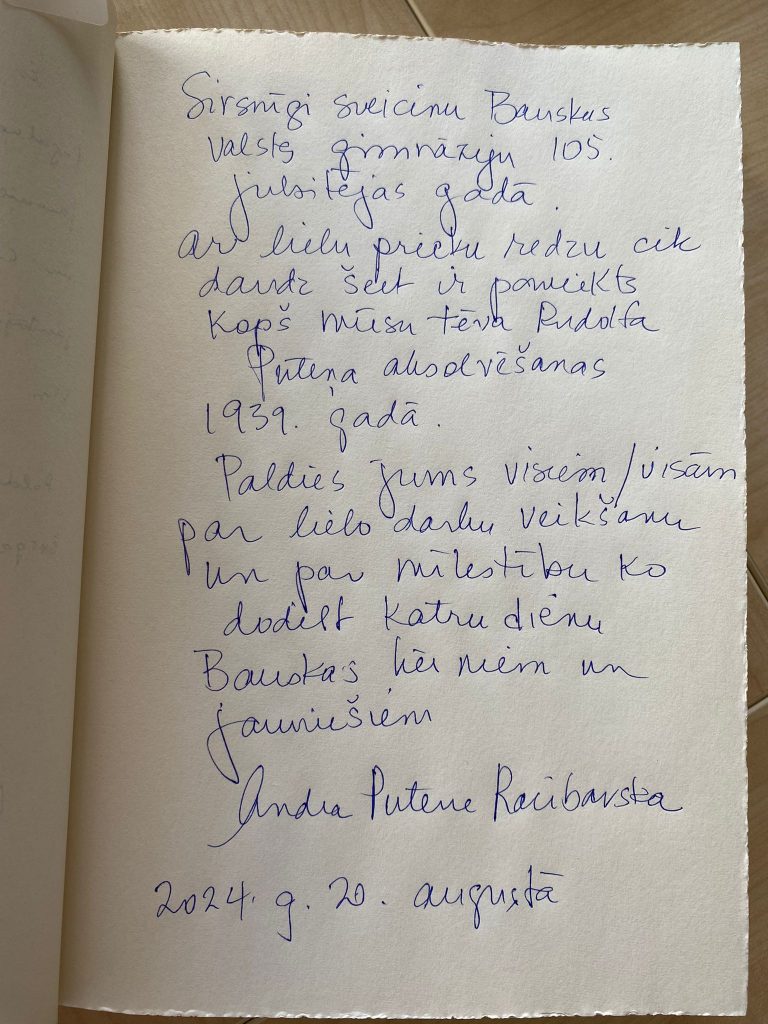 Sirsnīgi sveicinu Bauskas
Valsts ģimnāziju 105.
jubilejas gadā.
ar lielu prieku redzu cik
daudz šeit ir panākts
kopš mūsu tēva Rudolfa
Puteņa absolvēšanas
1939. gadā.
Paldies jums visiem/visām
par lielo darbu veikšanu
un par mīlestību ko
dodiet katru dienu
Bauskas bērniem un
jauniešiem
Andra Putene Racibarska
2024. g. 20. augustā